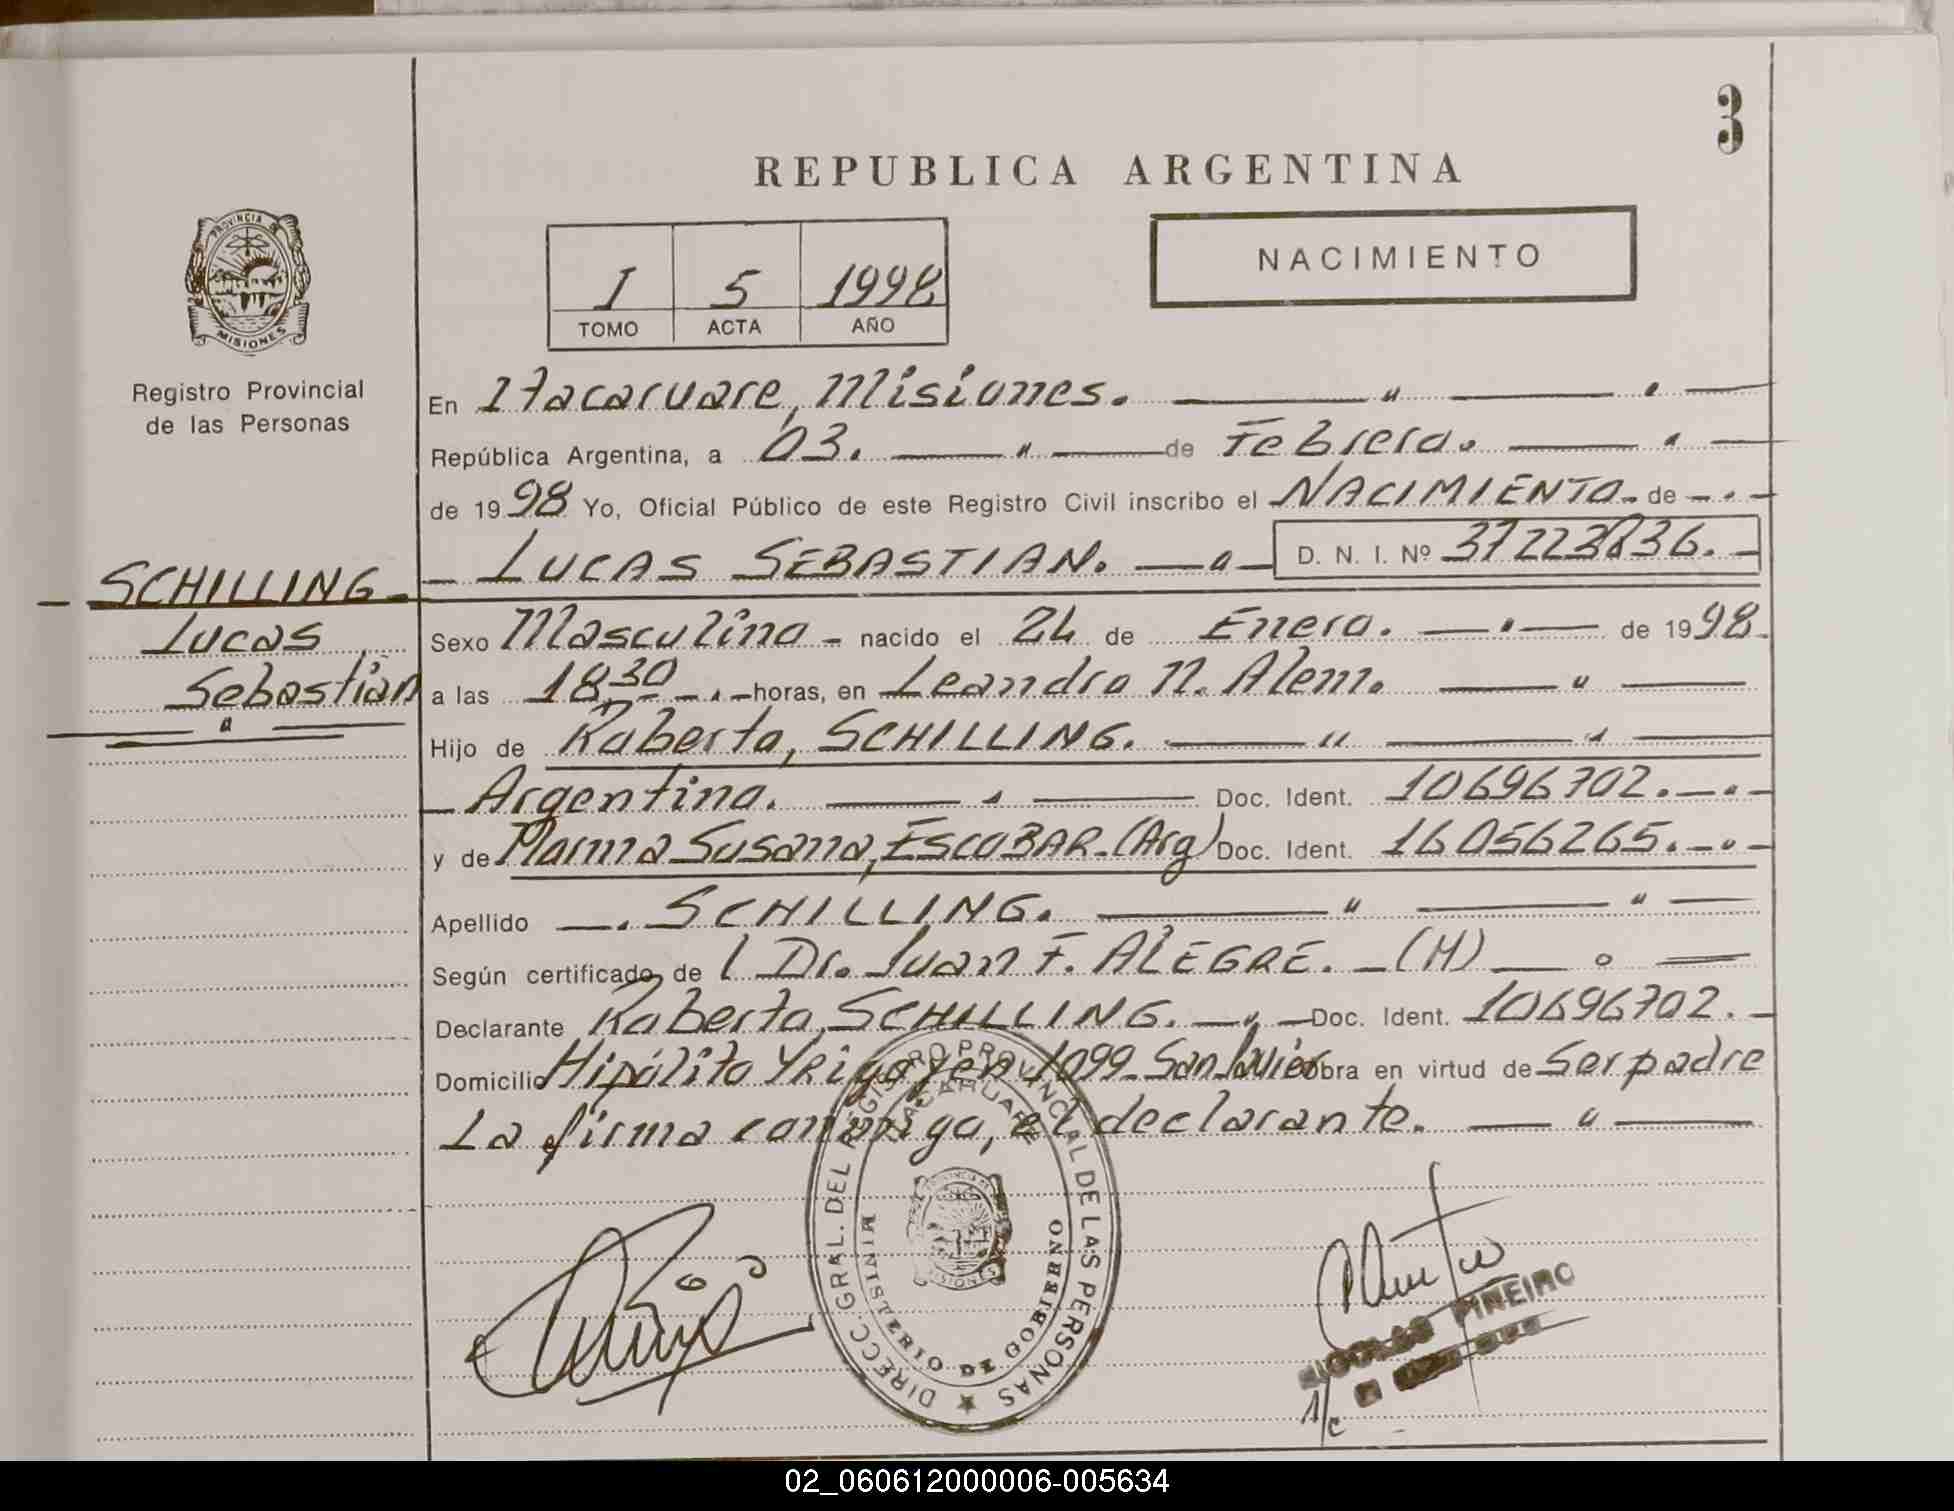 3
REPUBLICA ARGENTINA
PROVINCIA DE
MISIONES
Registro Provincial
de las Personas
I 5 1998
TOMO ACTA AÑO
NACIMIENTO
En Itacaruare, Misiones.
República Argentina, a 03. de Febrero.
de 1998 Yo, Oficial Público de este Registro Civil inscribo el NACIMIENTO de
LUCAS SEBASTIAN. D. N. I. Nº 37223836.
SCHILLING
Lucas
Sebastián
Sexo Masculino - nacido el 24 de Enero. de 1998
a las 18,30 horas, en Leandro N. Alem.
Hijo de Roberto, SCHILLING.
Argentino. Doc. Ident. 10696702.
y de Marina Susana, ESCOBAR (Arg) Doc. Ident. 16056265.
Apellido SCHILLING.
Según certificado de Dr. Juan F. ALEGRE. (M)
Declarante Roberto, SCHILLING. Doc. Ident. 10696702.
Domicilio Hipólito YRigoyen 1099 San Javier obra en virtud de Ser padre
La firma conmigo, el declarante.
DIRECC. GRAL. DEL REGISTRO PROVINCIAL DE LAS PERSONAS
ITACARUARE
MINISTERIO DE GOBIERNO
MISIONES
NICOLAS PIÑEIRO
02_060612000006-005634